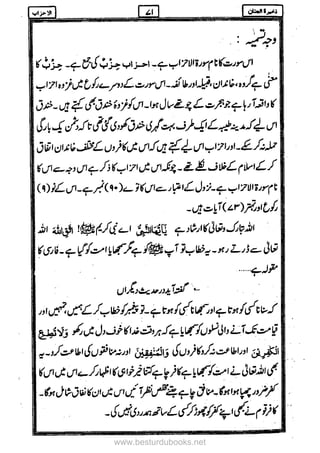 الاحزاب ۷۱ ذخیرۃ الجنان
وجہ تسمیہ :
اس سورت کا نام سورۃ الاحزاب ہے۔ احزاب حِزْبٌ کی جمع ہے۔ حِزْبٌ کا
معنیٰ ہے گروہ، خاندان، قبیلہ اور طائفہ۔ اس سورت کے دوسرے رکوع میں غزوہ احزاب
کا واقعہ آ رہا ہے جو ہجرت کے چوتھے سال ہوا۔ اس کو غزوۂ خندق بھی کہتے ہیں۔ خندق
اس لیے کہ مدینہ طیبہ کے ایک طرف بہت گہری خندق کھودی گئی تھی تا کہ دشمن یک بارگی
حملہ نہ کر سکے۔ اور احزاب اس لیے کہتے ہیں کہ اس میں کافروں کے مختلف خاندان اتفاق
کر کے اسلام کے خلاف نکلے تھے۔ چونکہ اس میں احزاب کا ذکر ہے اس وجہ سے اس کا
نام سورۃ الاحزاب ہے۔ نزول کے اعتبار سے اس کا نوے (۹۰) نمبر ہے۔ اس کے نو (۹)
رکوع اور تہتر (۷۳) آیات ہیں۔
اللہ تبارک وتعالیٰ کا ارشاد ہے یٰٓاَیُّهَا النَّبِیُّ اے نبی کریم ﷺ! اتَّقِ اللّٰهَ اللہ
تعالیٰ سے ڈرتے رہو۔ یہ خطاب تو آپ ﷺ کو ہے مگر سمجھایا امت کو گیا ہے۔ فارسی کا
مقولہ ہے ......
؎ گفتہ آید در حدیث دیگراں
کہ سنانا کسی کو ہوتا ہے اور سمجھانا کسی کو ہوتا ہے۔ تو پیغمبر کو خطاب کر کے ہمیں، تمہیں، اور
قیامت تک آنے والی نسلوں کو سمجھایا ہے کہ ہر وقت خدا کا خوف دل میں رکھو وَلَا تُطِعِ
الْكٰفِرِیْنَ اور اطاعت نہ کرو کافروں کی وَالْمُنٰفِقِیْنَ اور نہ منافقوں کی اطاعت کرو۔ یہ
بھی اللہ تعالیٰ نے امت کو سمجھایا ہے کافر چاہے کتنا خیر خواہی کا اظہار کرے اس میں اس کا
کفر ضرور چھپا ہوا ہوگا۔ منافق چاہے جتنے مخلص نظر آئیں اس میں ان کا نفاق شامل ہوگا۔
کافر قوم نے کبھی بھی اپنے کفر کو چھوڑ کر کسی کے ساتھ ہمدردی نہیں کی۔
www.besturdubooks.net